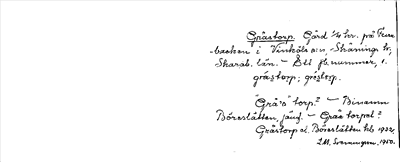 Gråstorp. Gård 1/4 hr. på Fura-
backen i Vinköls s:n, Skånings h:,
Skarab. län. — Ett jb. nummer, 1.
gråstorp; gråstorp.
"Grå's" torp? — Binamn
Böreslätten, jämf. — Grås torpet?
Gråstorp el. Böreslätten kb 1932.
I.M. Svenungsson. 1950.